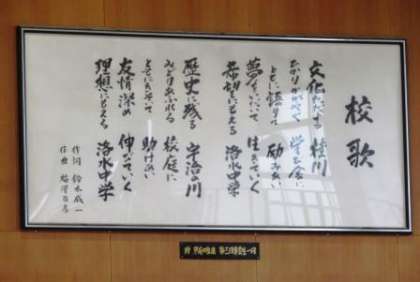 校歌
文化 桂川
ひかりかがやく 学舎に
ともに語りて 励みあい
夢をいだいて 生きていく
希望にもえる 洛水中学
歴史に残る 宇治の川
みどりあふれる 校庭に
ともに 助けあい
友情深め 伸びていく
理想にもえる 洛水中学
作詞 鈴木成一
作曲